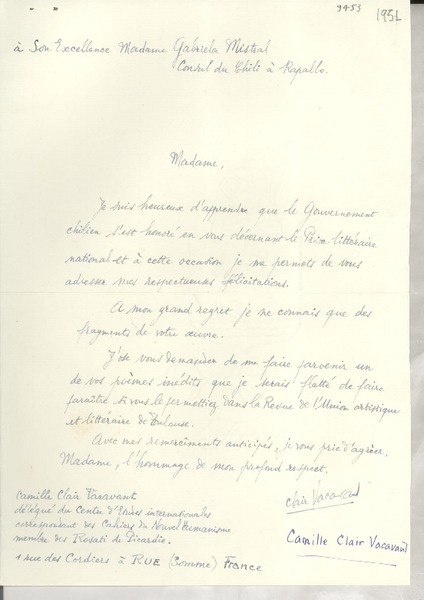 9459
1951
à Son Excellence Madame Gabriela Mistral
Consul du Chili à Rapallo.
Madame,
Je suis heureux d'apprendre que le Gouvernement
chilien s'est honoré en vous décernant le Prix littéraire
national et à cette occasion je me permets de vous
adresser mes respectueuses félicitations.
A mon grand regret je ne connais que des
fragments de votre œuvre.
J'ose vous demander de me faire parvenir un
de vos poèmes inédits que je serais flatté de faire
paraître si vous le permettez dans la Revue de l'Union artistique
et littéraire de Toulouse.
Avec mes remerciements anticipés, je vous prie d'agréer,
Madame, l'hommage de mon profond respect.
Clair Vacavant
Camille Clair Vacavant
délégué du Centre d'Etudes internationales
correspondant des Cahiers du Nouvel Humanisme
membre des Rosati de Picardie.
1 rue des Cordiers à RUE (Somme) France
Camille Clair Vacavant